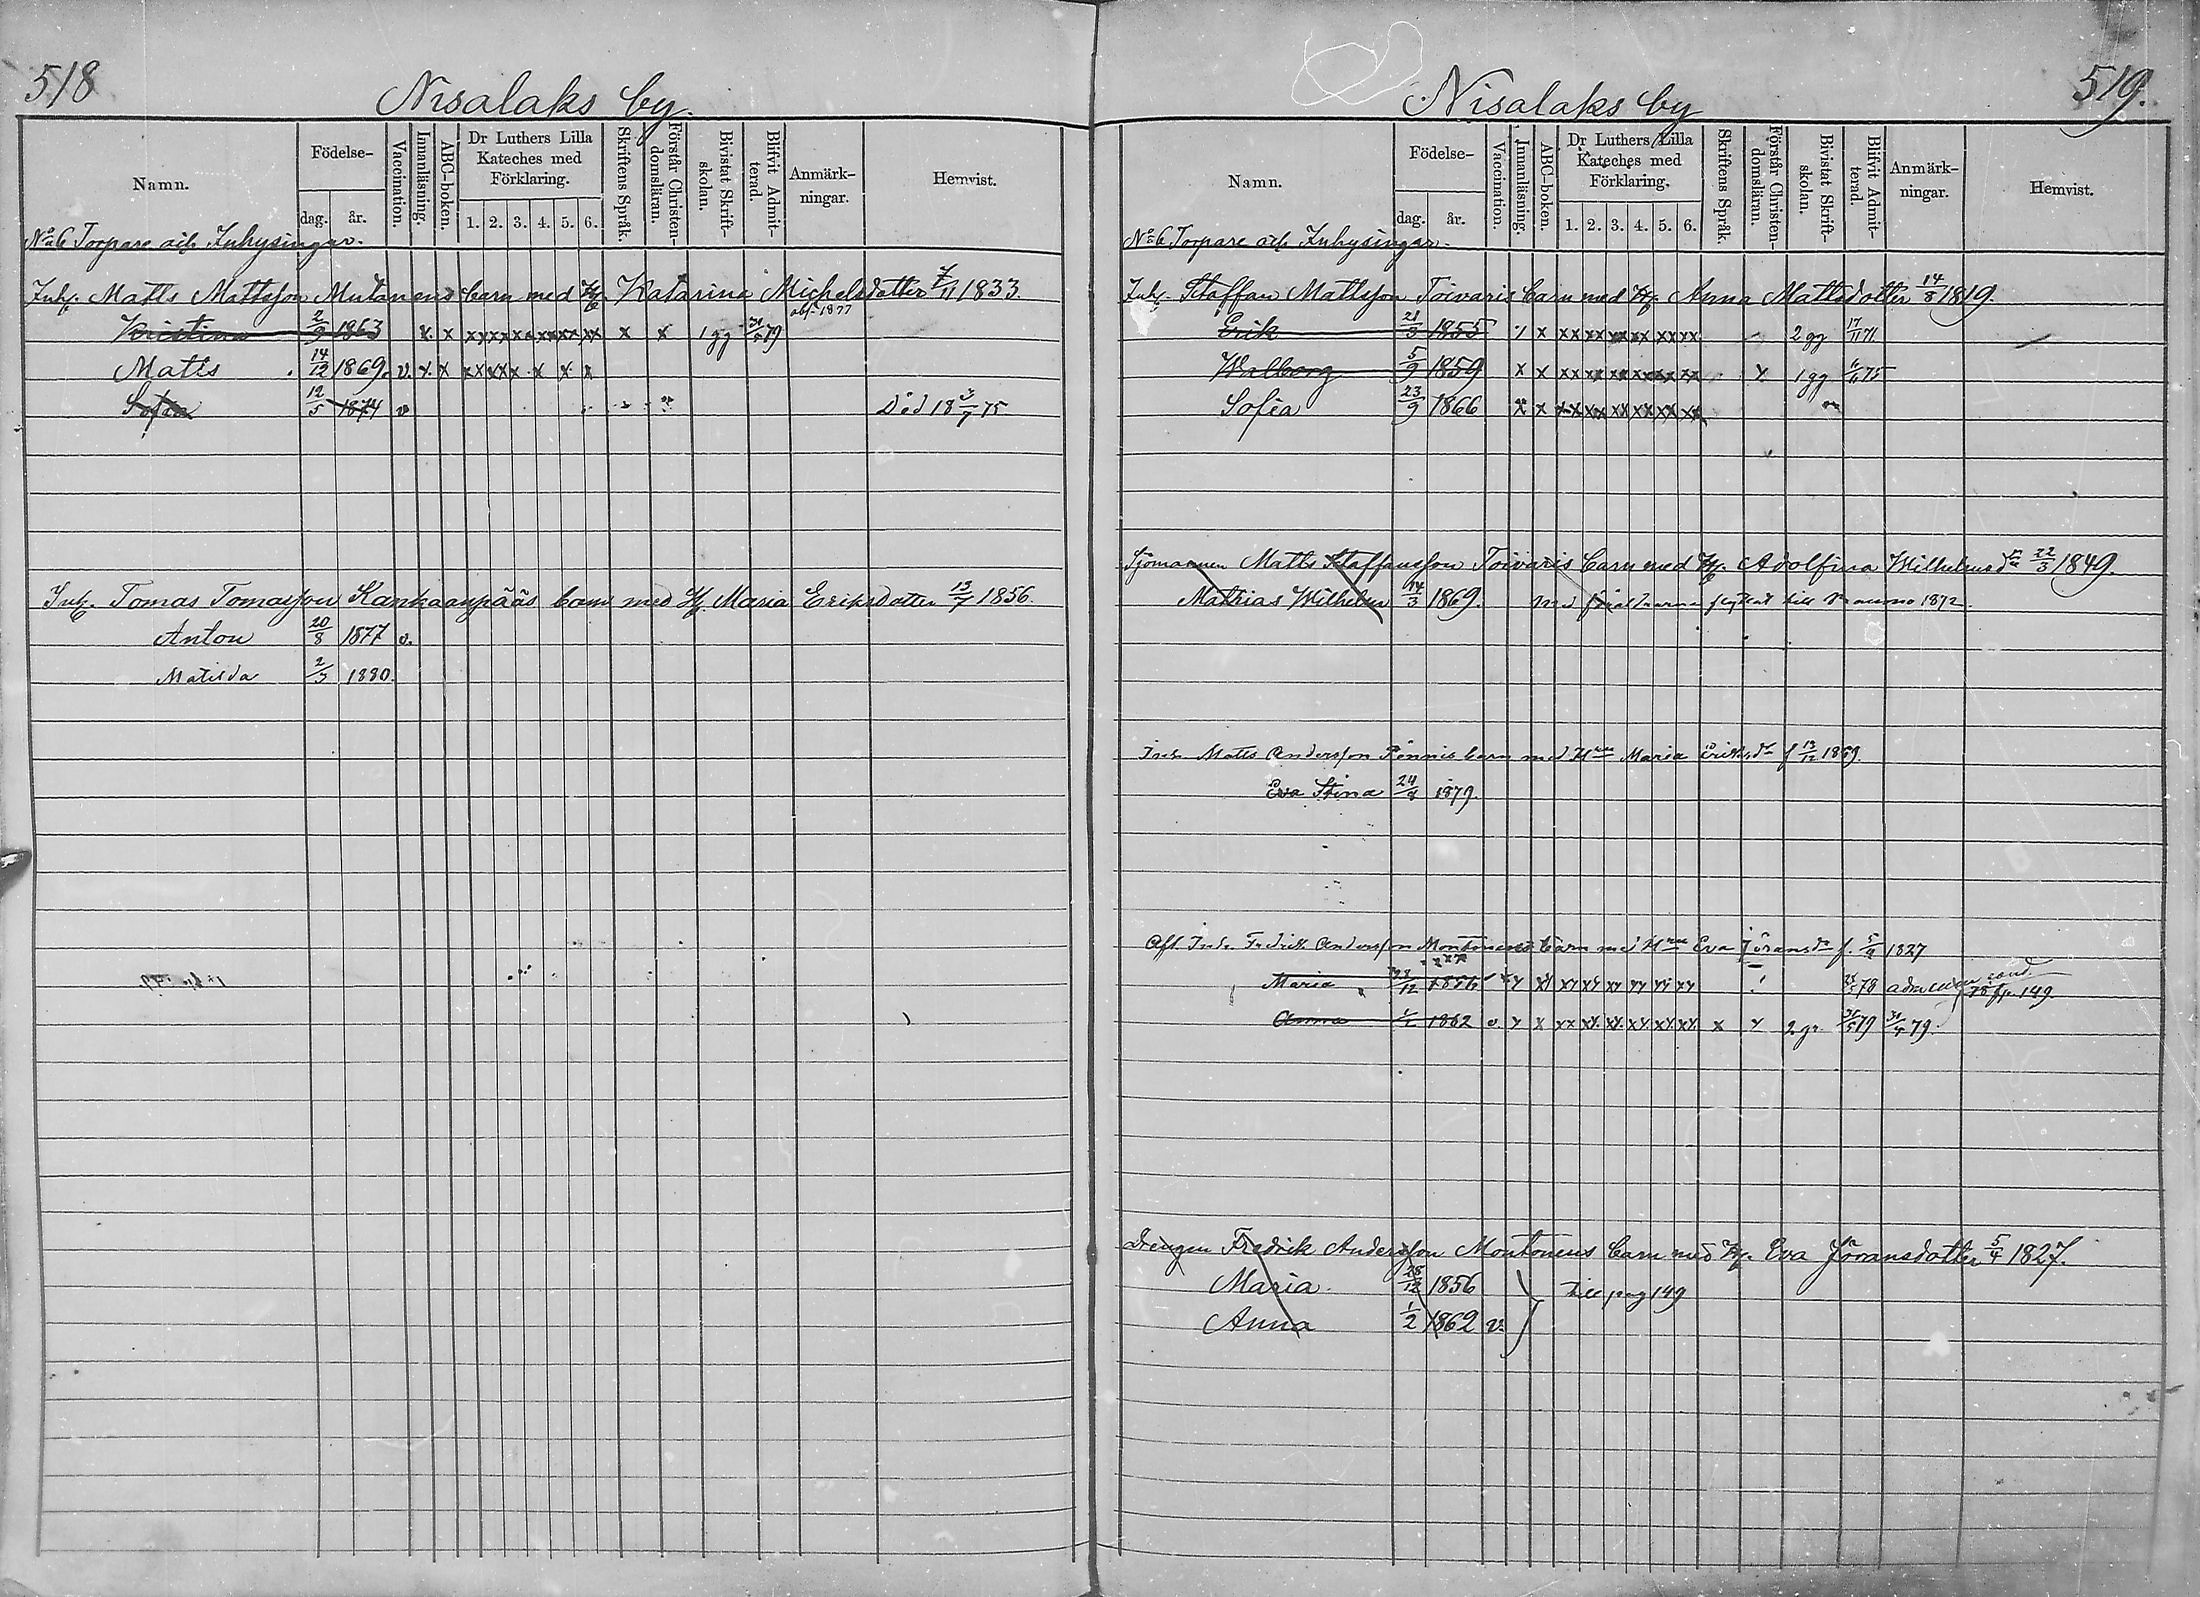 518
Nisalaks by.
Namn.
Födelse-
dag.
år.
Vaccination.
Innanläsning.
ABC-boken.
Dr Luthers Lilla
Kateches med
Förklaring.
1. 2. 3. 4. 5. 6.
Skriftens Språk.
Förstår Christen-
domsläran.
Bivistat Skrift-
skolan.
Blifvit Admit-
terad.
Anmärk-
ningar.
Hemvist.
No 6 Torpare och Inhysingar.
Inh. Matts Mattsson Mutanens barn med H. Katarina Michelsdotter 7/11 1833.
Kristina 2/9 1863 x. x xx xx xx xx xx xx x x 1 gg 79 abs. 1877
Matts 14/12 1869. v. x. x xx xx x x x x
Sofia 12/5 1874 v Död 18 3/7 75
Inh. Tomas Tomasson Kankaanpääs barn med H. Maria Eriksdotter 13/7 1856.
Anton 20/8 1877 v.
Matilda 2/3 1880.
519.
Nisalaks by
Namn.
Födelse-
dag.
år.
Vaccination.
Innanläsning.
ABC-boken.
Dr Luthers Lilla
Kateches med
Förklaring.
1. 2. 3. 4. 5. 6.
Skriftens Språk.
Förstår Christen-
domsläran.
Bivistat Skrift-
skolan.
Blifvit Admit-
terad.
Anmärk-
ningar.
Hemvist.
No 6 Torpare och Inhysingar.
Inh. Staffan Mattsson Toivaris barn med H. Anna Mattsdotter 14/8 1819.
Erik 21/3 1855 x xx xx xx xx xx xx 2 gg 17/11 71
Walborg 5/9 1859 x x xx xx xx xx xx xx x 1 gg 75
Sofia 23/9 1866 x x xx xx xx xx xx xx
Sjömannen Matts Staffansson Toivaris barn med H. Adolfina Wilhelmsdr 22/3 1849.
Mathias Wilhelm 14/3 1869. med föräldrarne flyttat till Raumo 1872.
Inh. Matts Andersson Pennis barn med Hu Maria Eriksdr f 13/12 1869.
Eva Stina 24/8 1879.
Afl. Inh. Fredrik Andersson Montonens barn med Hu Eva Göransdr f. 5/4 1827
Maria 28/12 1856 x x xx xx xx xx xx xx 78 149.
Anna 1/2 1862 v. x x xx xx xx xx xx xx x x 2 gr. 31/5 79 79.
Drengen Fredrik Andersson Montonens barn med H. Eva Jöransdotter 5/4 1827.
Maria 28/12 1856 till pag 149
Anna 1/2 1862 v.